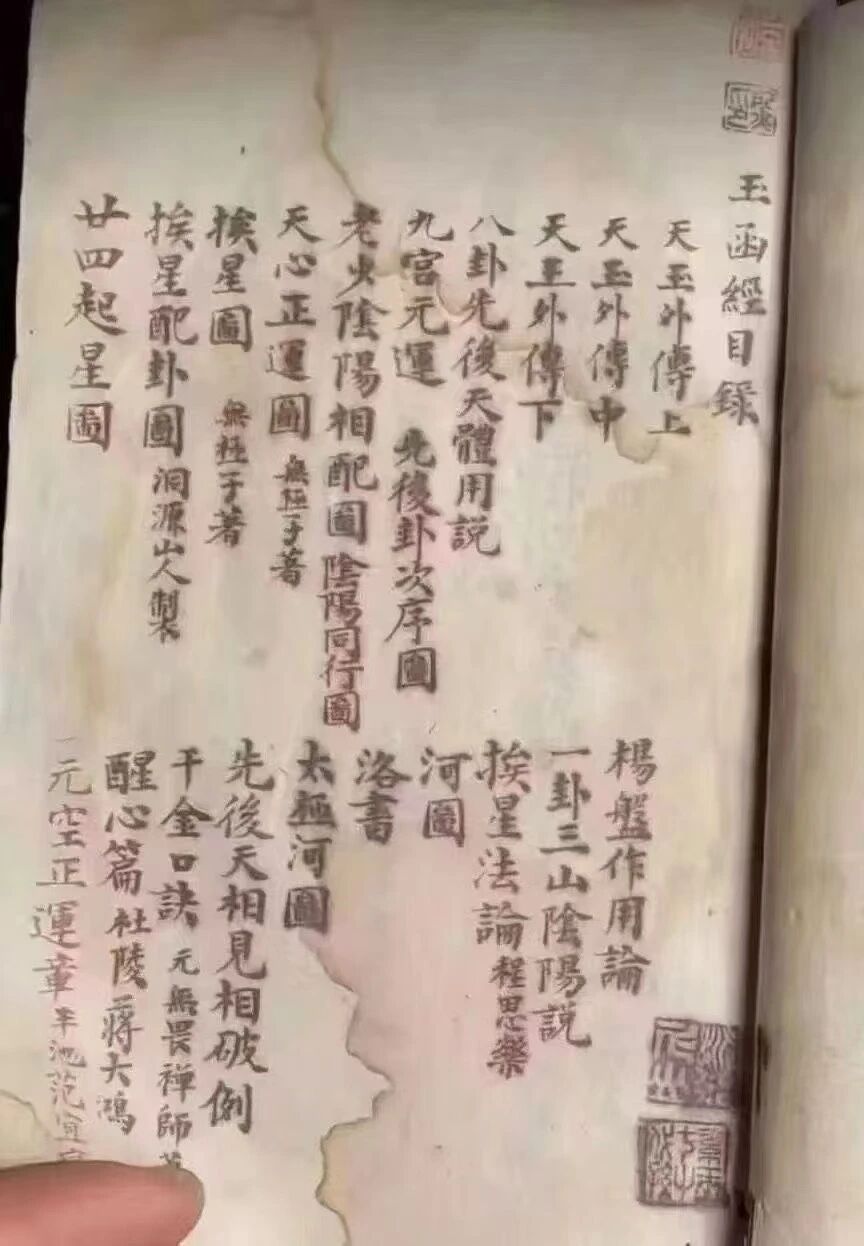 玉函經目錄
天玉外傳上
天玉外傳中
天玉外傳下
八卦先後天體用説
九宫元運 先後卦次序圖
老少陰陽相配圖 陰陽同行圖
天心正運圖 無極子著
挨星圖 無極子著
挨星配卦圖 洞源山人製
廿四起星圖
楊盤作用論
一卦三山陰陽説
挨星法論 程思樂
河圖
洛書
太極河圖
先後天相見相破例
千金口訣 元無畏禅師著
醒心篇 杜陵蔣大鴻
元空正運章 池范宜